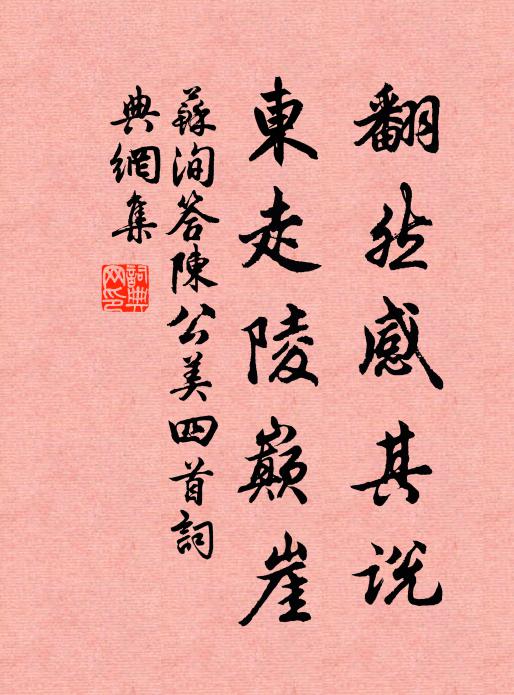 翻然感其說
東走陵巔崖
蘇洵答陳公美四首詞
典網集
詞典網印